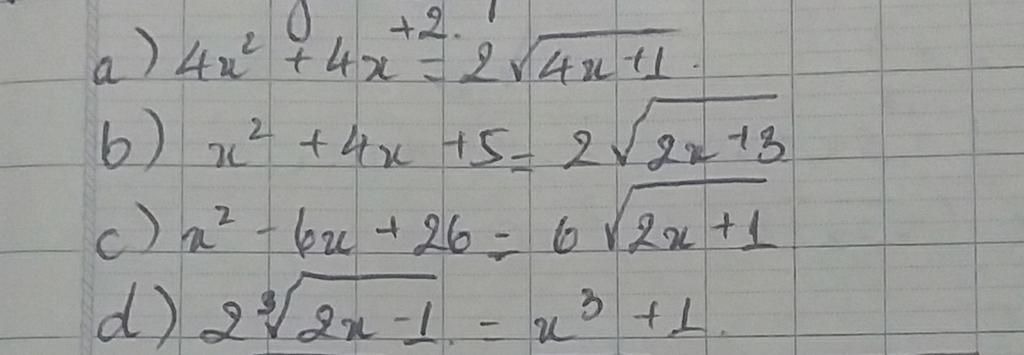 a) 4x² + 4x + 2 = 2√(4x + 1).
b) x² + 4x + 5 = 2√(2x + 3)
c) x² - 6x + 26 = 6√(2x + 1)
d) 2∛(2x - 1) = x³ + 1.